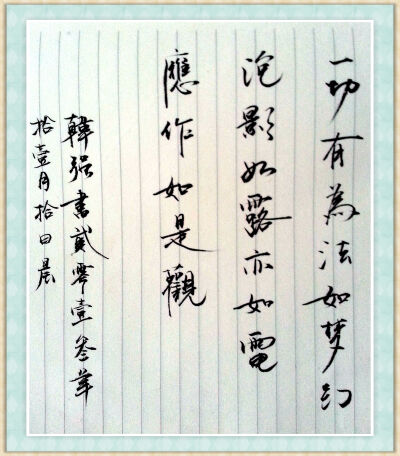 一切有為法如梦幻
泡影如露亦如電
應作如是觀
韓强書貳零壹叁年
拾壹月拾日晨